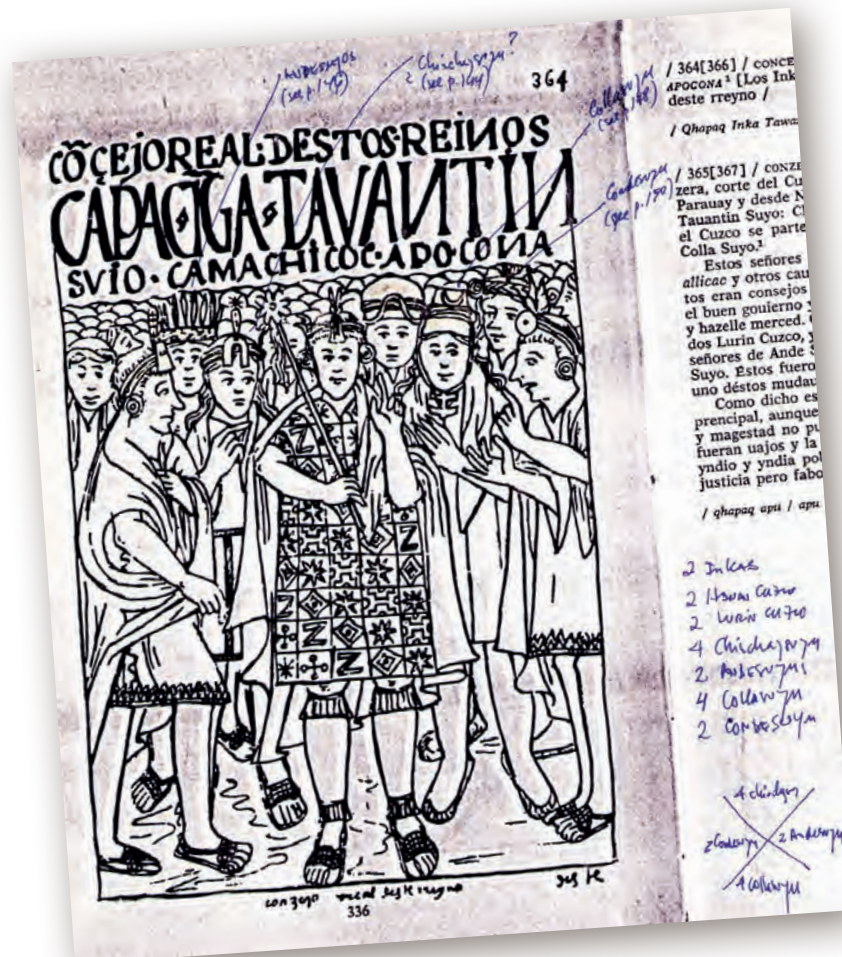 ANDESUYOS
(see p. 146)
Chinchaysuyu?
2 (see p. 144)
364
Collasuyu
(see p. 148)
Condesuyu
(see p. 150)
CÕÇEJOREAL·DESTOS·REINOS
CAPAC·ĨGA·TAVANTIN
SVIO·CAMACHICOC·APO·CONA
conzejo real deste rreyno
336
/ 364[366] / CONCE
APOCONA¹ [Los Ink
deste rreyno /
/ Qhapaq Inka Tawa
/ 365[367] / CONZE
zera, corte del Cu
Parauay y desde N
Tauantin Suyo: C
el Cuzco se parte
Colla Suyo.¹
Estos señores
allicac y otros cau
tos eran consejos
el buen gouierno y
y hazelle merced.
dos Lurin Cuzco, y
señores de Ande S
Suyo. Éstos fuero
uno déstos mudau
Como dicho es
prencipal, aunque
y magestad no pu
fueran uajos y la
yndio y yndia pol
justicia pero fabo
/ qhapaq apu / apu
2 Inkas
2 Hanan Cuzco
2 Lurin Cuzco
4 Chinchaysuyu
2 Andesuyus
4 Collasuyu
2 Condesuyu
4 chinchay
2 Condesuyu
2 Andesuyu
4 collasuyu